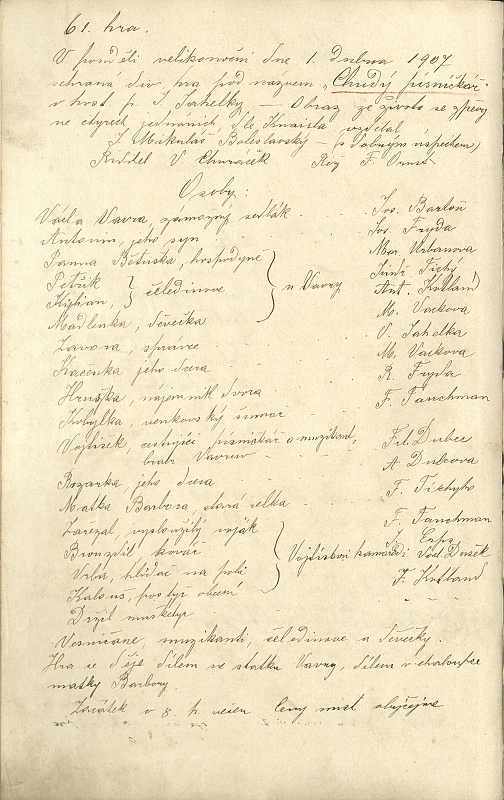 61. hra.
V pondělí velikonoční dne 1. dubna 1907
sehrána div. hra pod názvem „Chudý písničkář“
v host. p. J. Jahelky — Obraz ze života se zpěvy
ve čtyrech jednáních, dle Knaisla vzdělal
J. Mikuláš Boleslavský — (s dobrým úspěchem)
Ředitel V. Churáček Rež F. Ornst
Osoby:
Václa Vávra, zámožný sedlák Jos. Bartoň
Antonín, jeho syn Jos. Fryda
Panna Bětuška, hospodyně Mar. Urbanova
Petřík Jindř. Tichý
Kilián, } čeledínové } u Vávry Ant. Kutland
Madlenka, děvečka M. Vackova
Závora, správce V. Jahelka
Kačenka jeho dcera M. Vackova
Hruška, nájemník dvora R. Fryda
Kobylka, venkovský šumař F. Fanchman
Vojtíšek, cestující písničkář a muzikant,
bratr Vávrův Fil. Dubec
Rozárka, jeho dcera A. Dubcova
Matka Barbora, stará selka F. Tichyho
Zařezal, vysloužilý voják F. Fanchman
Brousdil, kovář
Vrba, hlídač na poli } Vojtíškovi kamarádi Václ. Dusek
Kalous, pastýř obecní F. Kutland
Držil mušketýr " " "
Vesničané, muzikanti, čeledínové a děvečky.
Hra se děje dílem ve statku Vávry, dílem v chaloupce
matky Barbory
Začátek v 8 h. večer Ceny míst obyčejné